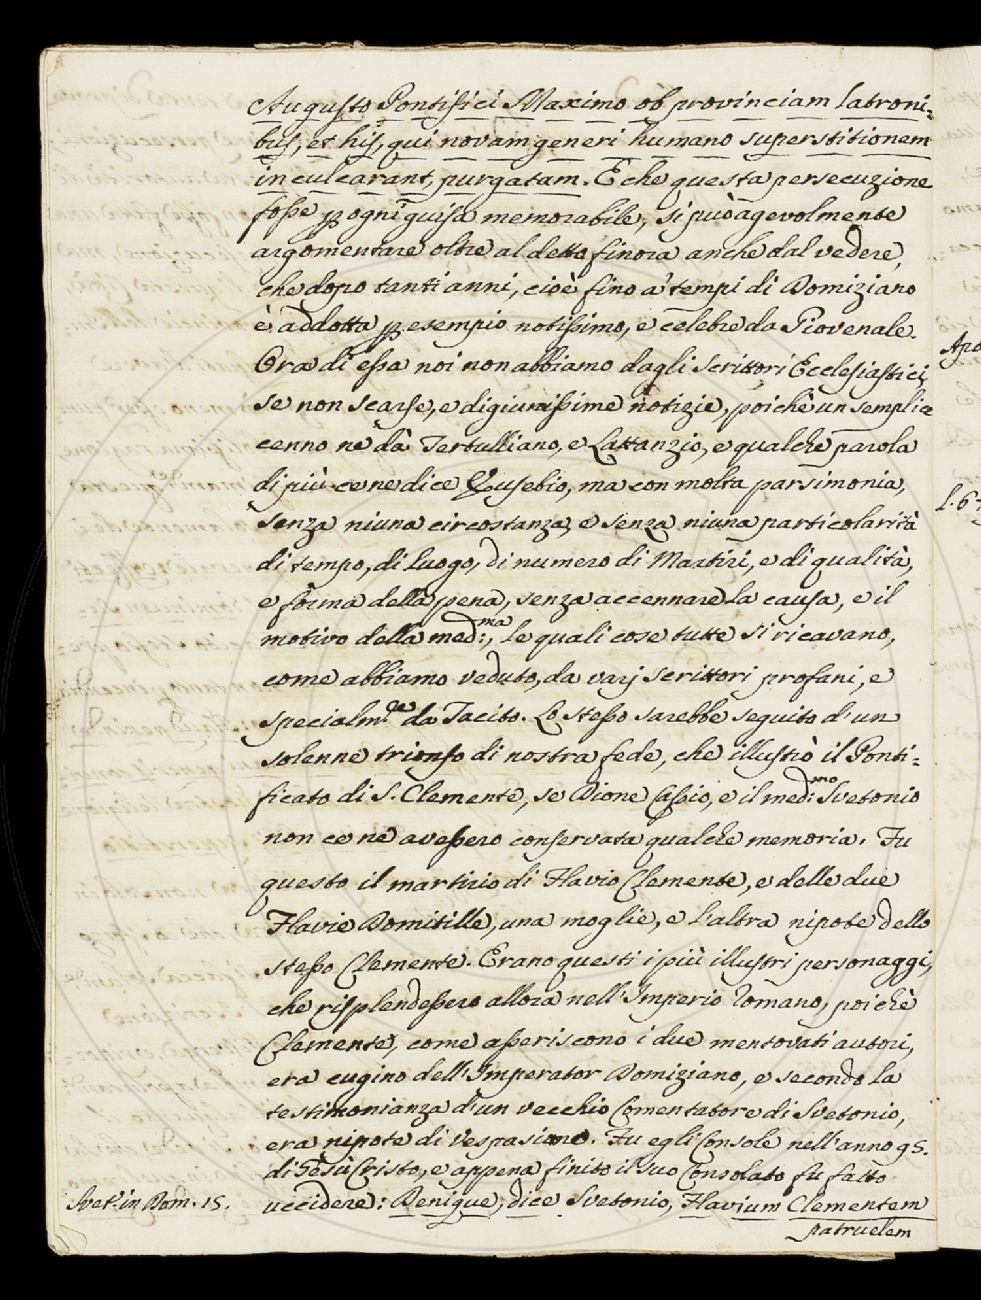 Augusto Pontifici Maximo ob provinciam latroni=
bus, et his, qui novam generi humano superstitionem
inculcarant, purgatam. E che questa persecuzione
fosse p ogni guisa memorabile, si può agevolmente
argomentare oltre al detto finora anche dal vedere,
che dopo tanti anni, cioè fino a' tempi di Domiziano
è addotta p esempio notissimo, e celebre da Giovenale.
Ora di essa noi non abbiamo dagli Scrittori Ecclesiastici,
se non scarse, e digiunissime notizie, poichè un semplice
cenno ne dà Tertulliano, e Lattanzio, e qualche parola
di più ce ne dice Eusebio, ma con molta parsimonia,
senza niuna circostanza, e senza niuna particolarità
di tempo, di luogo, di numero di Martiri, e di qualità,
e forma della pena, senza accennare la causa, e il
motivo della med:ma, le quali cose tutte si ricavano,
come abbiamo veduto, da varj Scrittori profani, e
specialm.te da Tacito. Lo stesso sarebbe seguito d'un
solenne trionfo di nostra fede, che illustrò il Ponti=
ficato di S. Clemente, se Dione Cassio, e il med:mo Svetonio
non ce ne avessero conservata qualche memoria. Fu
questo il martirio di Flavio Clemente, e delle due
Flavie Domitille, una moglie, e l'altra nipote dello
stesso Clemente. Erano questi i più illustri personaggi,
che risplendessero allora nell'Imperio Romano, poichè
Clemente, come asseriscono i due mentovati autori,
era cugino dell'Imperator Domiziano, e secondo la
testimonianza d'un vecchio Comentatore di Svetonio,
era nipote di Vespasiano. Fu egli Console nell'anno 95.
di Gesù Cristo, e appena finito il suo Consolato fu fatto
uccidere: Denique, dice Svetonio, Flavium Clementem
patruelem
Svet. in Dom. 15.